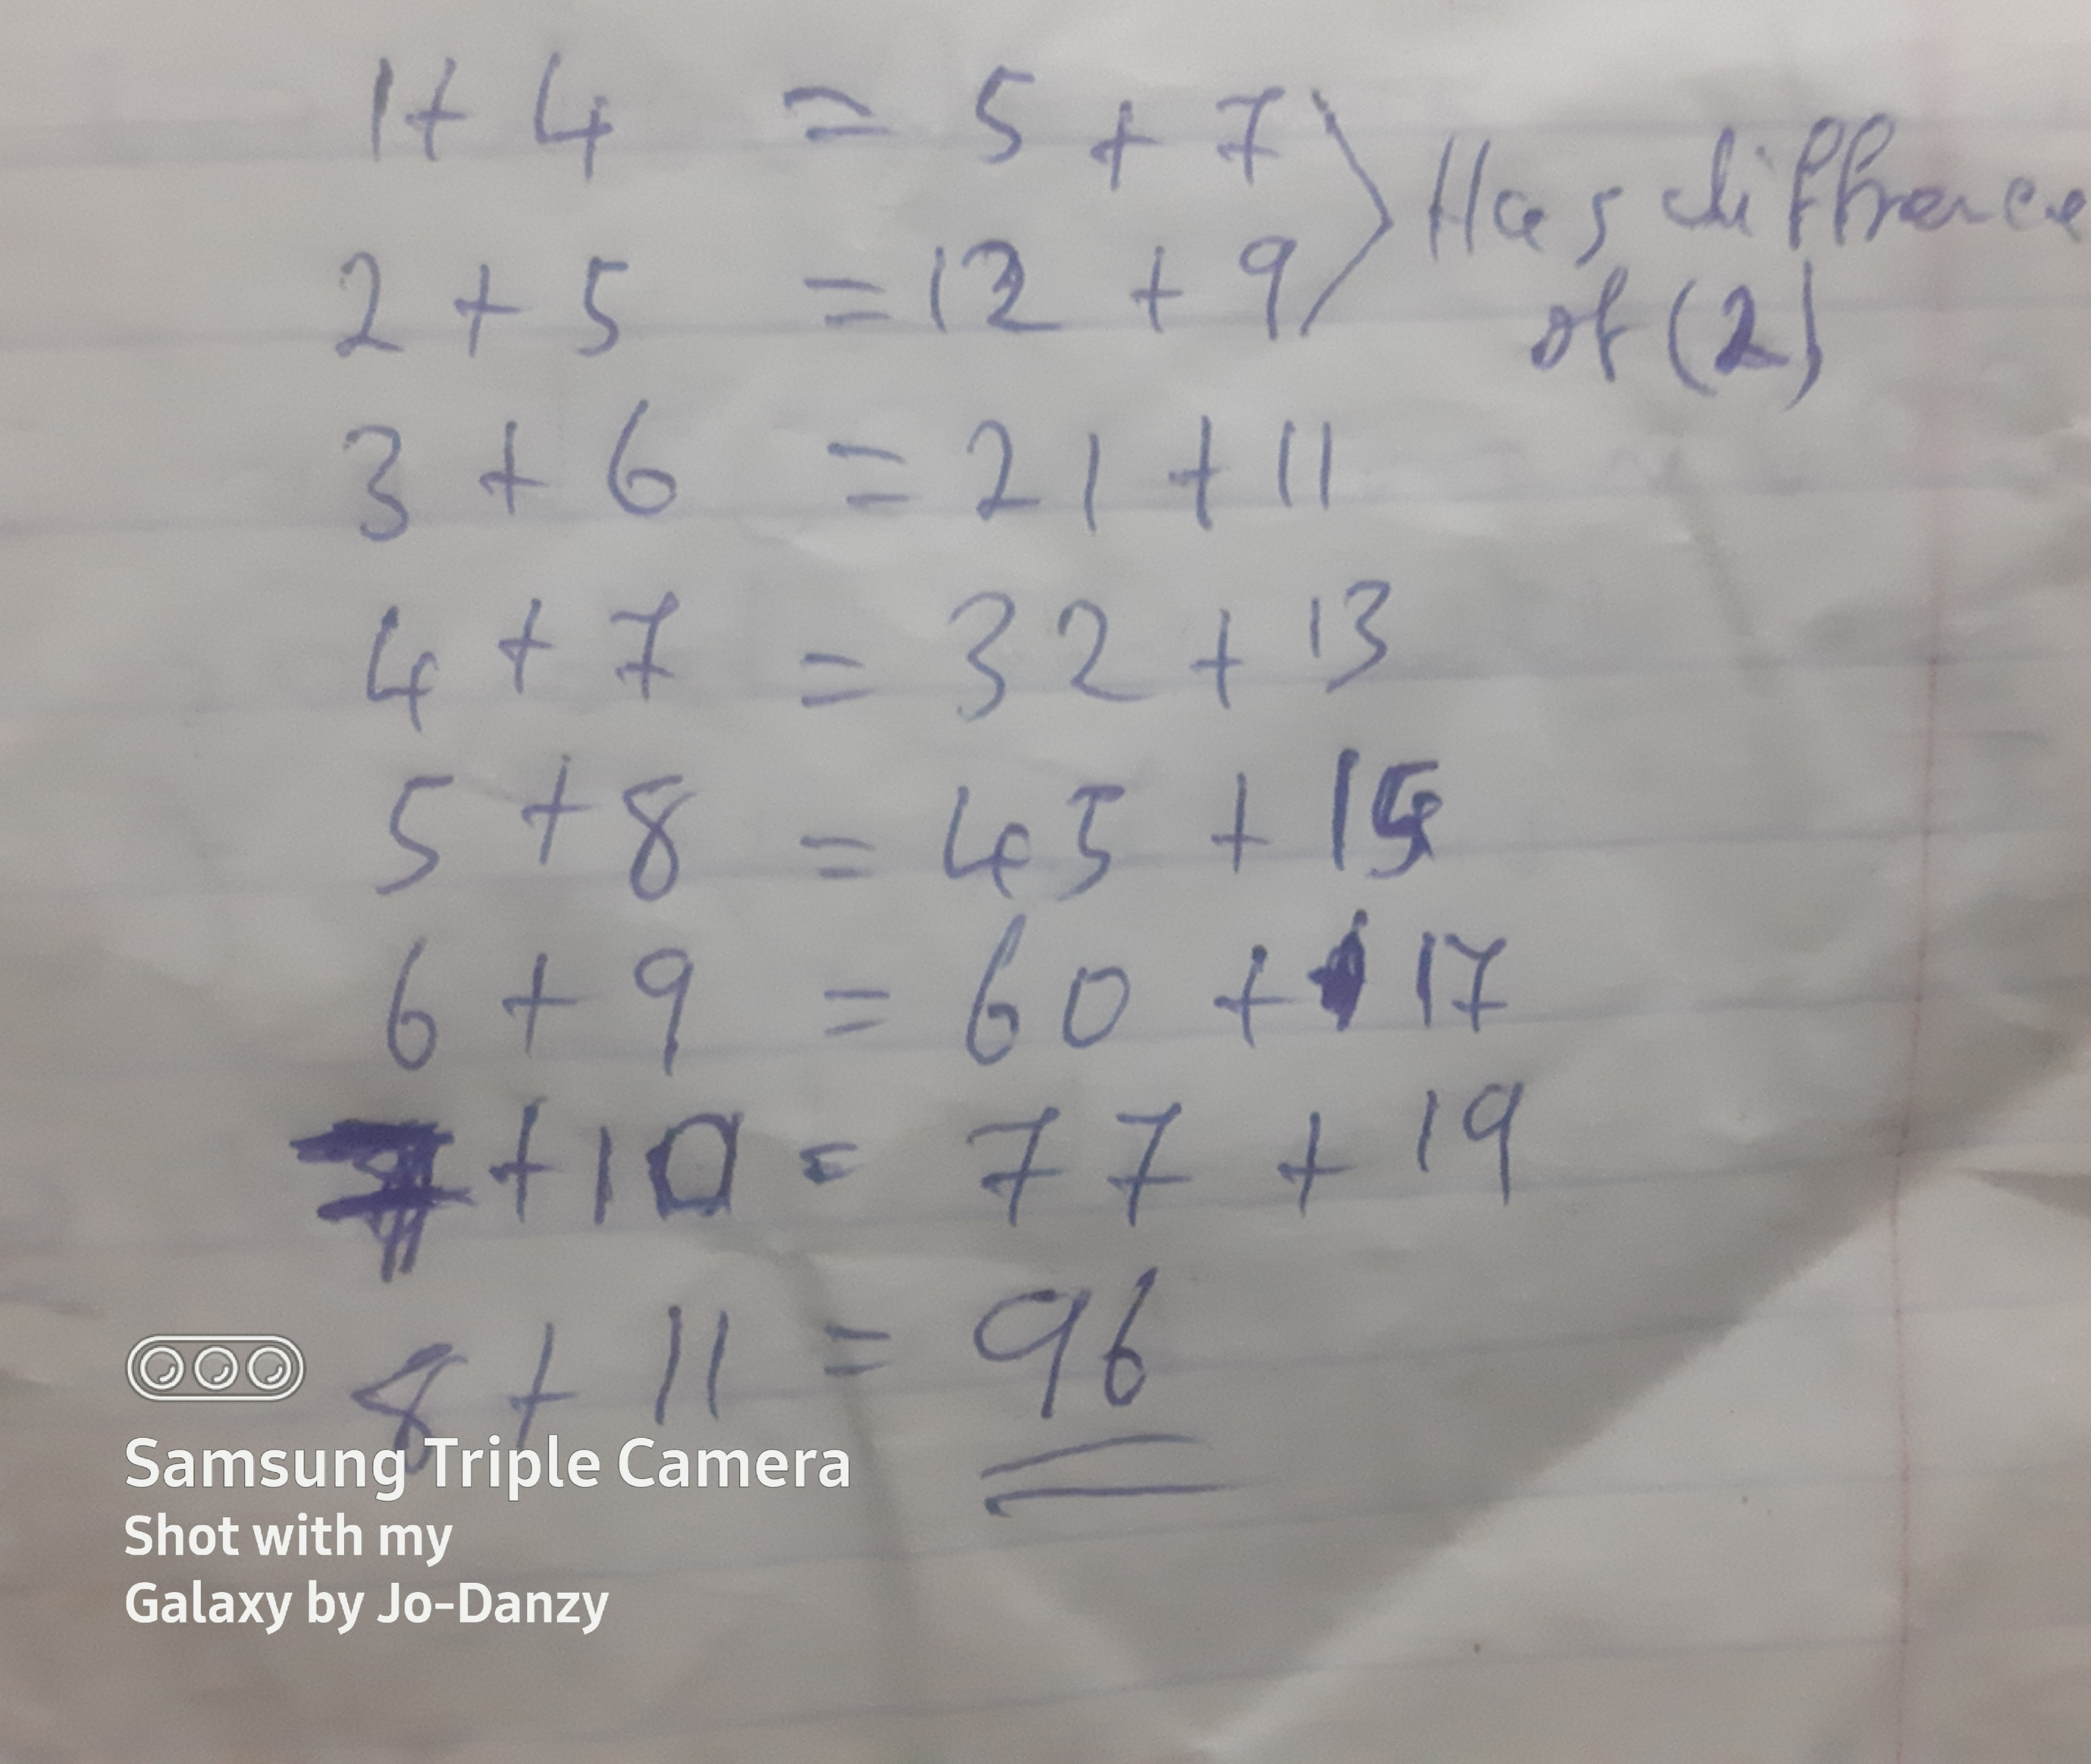 1+ 4 = 5 + 7
2 + 5 = 12 + 9
Has diffrence
of (2)
3 + 6 = 21 + 11
4 + 7 = 32 + 13
5 + 8 = 45 + 15
6 + 9 = 60 + 17
+ 10 = 77 + 19
8 + 11 = 96
Samsung Triple Camera
Shot with my
Galaxy by Jo-Danzy